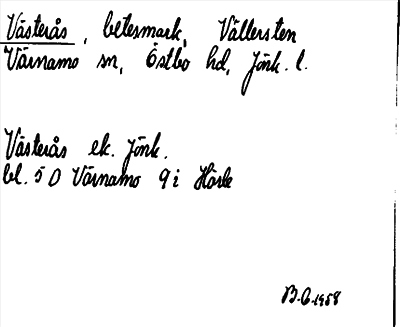 Västerås, betesmark, Vällersten
Värnamo sn, Östbo hd, Jönk. l.
Västerås ek. Jönk.
bl. 5 D Värnamo 9 i Hörle
B.G. 1958